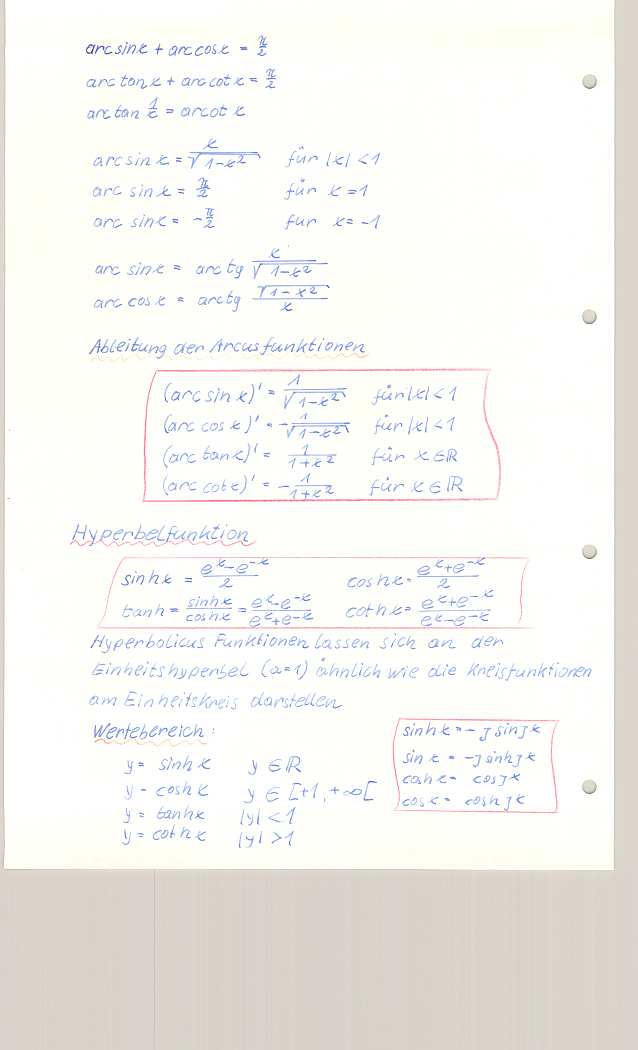 arc sin x + arc cos x = π/2
arc tan x + arc cot x = π/2
arc tan 1/x = arcot x
arc sin x = x/√(1-x²) für |x| < 1
arc sin x = π/2 für x = 1
arc sin x = -π/2 fur x = -1
arc sin x = arc tg x/√(1-x²)
arc cos x = arctg √(1-x²)/x
Ableitung der Arcusfunktionen
(arc sin x)' = 1/√(1-x²) für |x| < 1
(arc cos x)' = -1/√(1-x²) für |x| < 1
(arc tan x)' = 1/(1+x²) für x ∈ ℝ
(arc cot x)' = -1/(1+x²) für x ∈ ℝ
Hyperbelfunktion
sinh x = (eˣ-e⁻ˣ)/2 cosh x = (eˣ+e⁻ˣ)/2
tanh = sinh x/cosh x = (eˣ-e⁻ˣ)/(eˣ+e⁻ˣ) coth x = (eˣ+e⁻ˣ)/(eˣ-e⁻ˣ)
Hyperbolicus Funktionen lassen sich an der
Einheitshyperbel (a=1) ähnlich wie die Kreisfunktionen
am Einheitskreis darstellen
Wertebereich:
y = sinh x y ∈ ℝ
y = cosh x y ∈ [+1, +∞[
y = tanh x |y| < 1
y = coth x |y| > 1
sinh x = -j sin j x
sin x = -j sinh j x
cosh x = cos j x
cos x = cosh j x